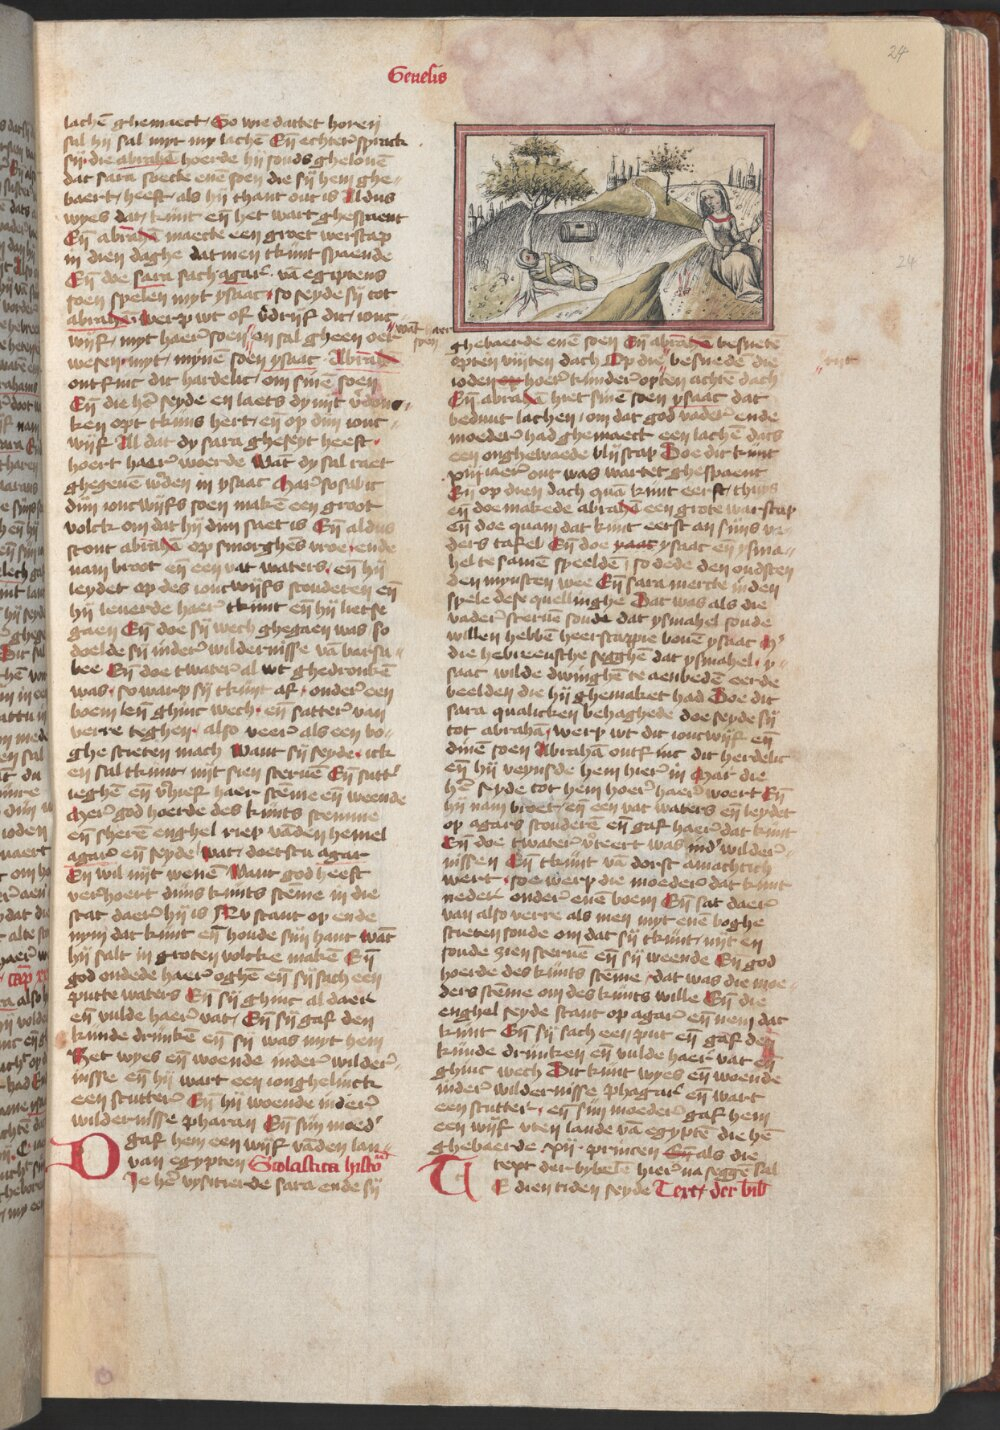 24
Genesis
lachē ghemaect So wie dattet horen
sal hij sal myt my lachē Eñ echter sprack
sij die abrahā hoerde hij souds ghelouē
dat sara soecte enē soen die sij hem ghe-
baert heeft als hij thant out is Aldus
wyes dat kint eñ het wart ghespaent
Eñ abrahā maecte een groet werscap
in dien daghe datmen tkint spaende
Eñ doe sara sach agar vā egiptens
soen spelen myt ysaac so seyde sij tot
abrahā werp wt of v̄drijf dit ionc
wijf myt haer soen en sal gheen oer
wesen myt mynē soen ysaac Abrahā
ontfinc dit hardelic om sinē soen
Eñ die hēr seyde en laets dy nit v̄don-
ken opt tkins hert eñ op dijn ionc
wijf All dat dy sara gheseyt heeft
hoert haer woerde wāt dy sal tact
ghegeuē wden in ysaac Mar so sal ic
dijn ioncwijfs soen makē een groot
volck om dat hij dijn saet is Eñ aldus
stont abrahā op smorghēs vroe ende
nam broot eñ een vat waters eñ hij
leydet op des ioncwijfs scouderen eñ
hij leuerde haer tkint eñ hij lietse
gaen Eñ doe sij wech ghegaen was so
doelde sij inder wildernisse vā barsa-
bee Eñ doe twater al wt ghedronkē
was so warp sij tkint af onder een
boem eñ ghinc wech eñ satter van
verre teghen also veer als een bo-
ghe scieten mach Want sij seyde ick
en sal tkint nijt sien steruē Eñ satt
ieghē eñ v̄hief haer stēme eñ weende
Mer god hoerde des kints stemme
eñ sherē enghel riep vāden hemel
agar eñ seyde wat doetstu agar
En wil nijt wenē Want god heeft
verhoert dijns kints stēme in die
stat daer hij is Nu stant op ende
nym dat kint eñ houde sijn hant wāt
hij salt in groten volcke makē Eñ
god ondede haer oghē eñ sij sach een
putte waters Eñ sij ghinc al daer
eñ vulde haer vat Eñ sij gaf den
kinde drinkē eñ sij was myt hem
Het wyes eñ woende inder wilder-
nisse eñ hij wart een ionghelinck
een scutter Eñ hij woende inder
wildernisse pharan Eñ sijn moed
gaf hem een wijf vāden lan
van egypten Scolastica histo
Die hēr vysitierde sara ende sij
ghebaerde enē soen Eñ abrahā besnete
opten viijten dach Op die besneden die
ioden hoer kinder opten achtē dach
Eñ abrahā hiet sine soen ysaac dat
beduut lachen om dat god vader ende
moeder had ghemaect een lachē dats
een onghewaede blijscap Doe dit kint
xiij iaer out was wartet ghespaent
Eñ op dien dach quā kint eerst thuys
eñ doe makede abrahā een grote warscap
eñ doe quam dat kint eerst an sijns va-
ders tafel Eñ doe ysaac eñ ysma-
hel te samē speeldē so dede den oudsten
den mynsten wee Eñ sara mercte inden
spele dese quellinghe Dat was als die
vader steruē soude dat ysmahel soude
willen hebbē heerscappie bouē ysaac
die hebreensche segghē dat ysmahel y-
saac wilde dwinghē te aenbedē eerde
beelden die hij ghemaket had Doe dit
sara qualicken behaghede doe seyde sij
tot abrahā werp wt dit ioncwijf eñ
dinē soen Abrahā ontfinc dit herdelic
eñ hij veynsde hem hier in Mar die
hēr seyde tot hem hoer haer woert Eñ
hij nam broet eñ een vat waters eñ leydet
op agars scouderē eñ gaf haer dat kint
Eñ doe twater v̄teert was ind wilder-
nissen Eñ tkint vā dorst amachtich
wert soe werp die moeder dat kint
neder onder enē boem Eñ sat daer
van also verre als men myt enē boghe
scieten soude om dat sij tkint nijt en
soude zien steruē eñ sij weende En god
hoerde des kints stēme dat was die moe-
ders stēme om des kints wille Eñ die
enghel seyde stant op agar eñ nem dat
kint Eñ sij sach een put eñ gaf den
kinde drincken eñ vulde haer vat eñ
ghinc wech Dit kint wyes eñ woende
inder wildernisse phagar eñ wart
een scutter eñ sijn moeder gaf hem
een wijf vten lande vā egyptē die hē
ghebaerde xij princen als die
text der bybelē hier na seggē sal
TE dien tiden seyde Text der bib
24